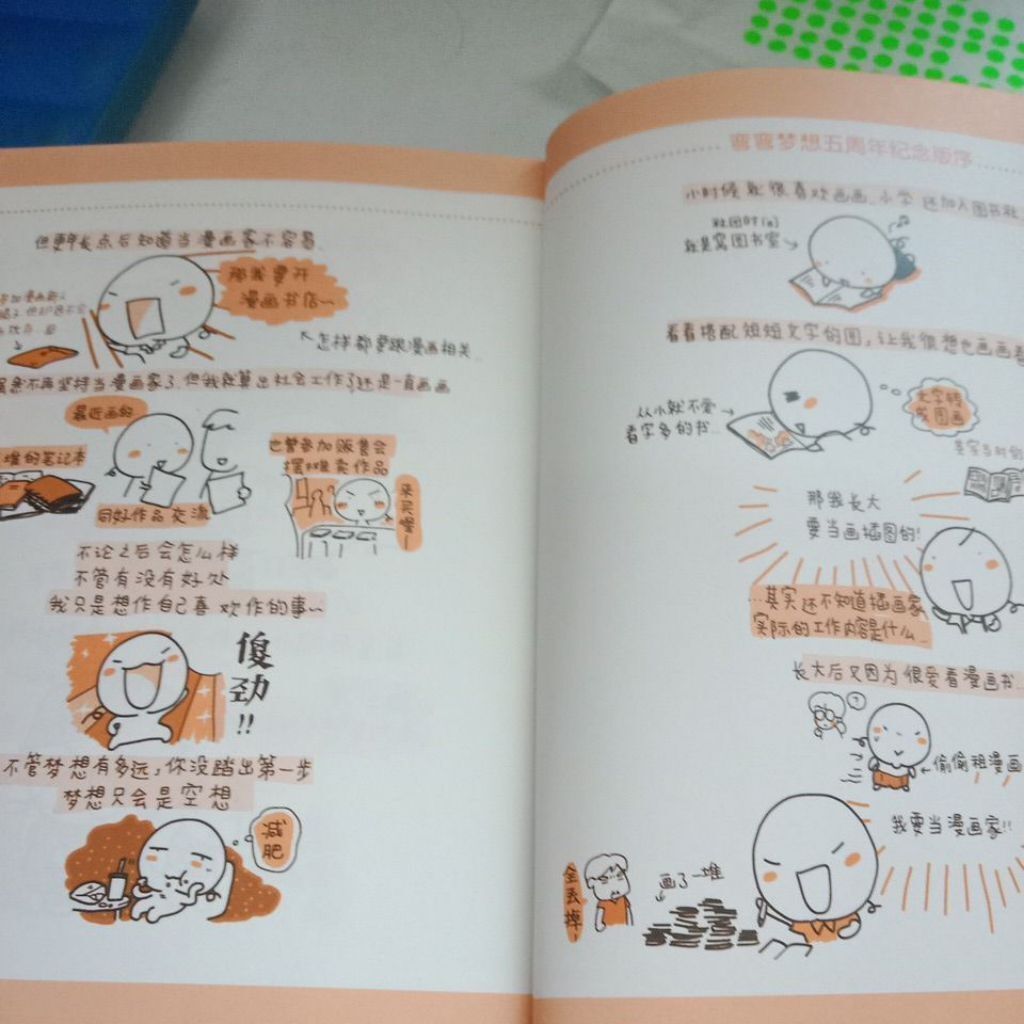 但更年长点后知道当漫画家不容易
那我要开
漫画书店~
怎样都要跟漫画相关..
不再坚持当漫画家了,但我就算出社会工作了还是一直画画
最近画的
堆的笔记本
同好作品交流
也曾参加贩售会
摆摊卖作品
来买喔~
不论之后会怎么样
不管有没有好处
我只是想作自己喜欢作的事~
傻劲!!
不管梦想有多远,你没踏出第一步
梦想只会是空想
减肥
弯弯梦想五周年纪念版序
小时候就很喜欢画画.小学还加入图书社
社团时间
就是窝图书室
看着搭配短短文字的图,让我很想也画画看
从小就不爱
看字多的书..
文字转
成图画
其实当时的
那我长大
要当画插图的!
...其实还不知道插画家
实际的工作内容是什么..
长大后又因为很爱看漫画书..
?
偷偷租漫画
我要当漫画家!!
画了一堆
全丢掉~